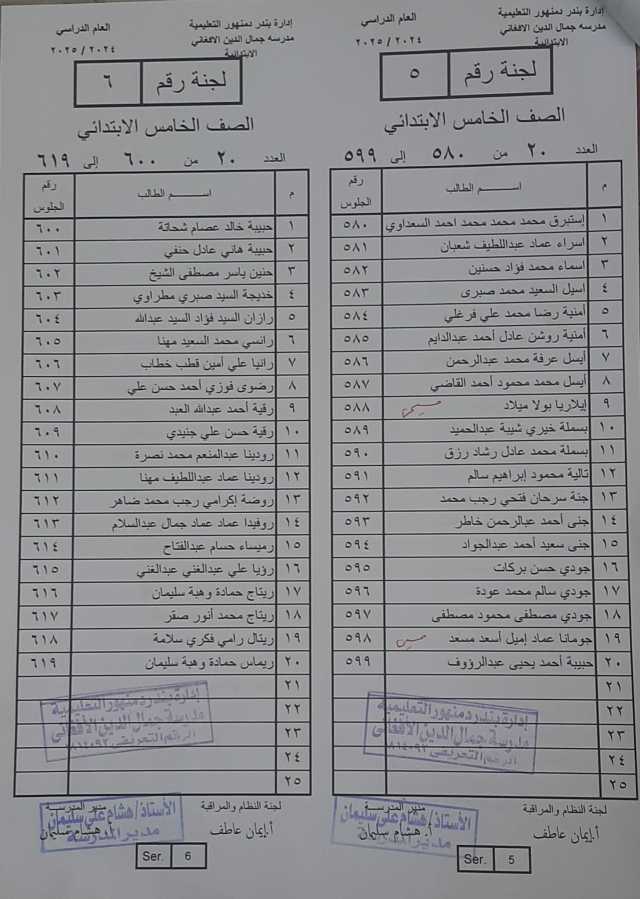 إدارة بندر دمنهور التعليمية
مدرسه جمال الدين الافغاني
الابتدائية
العام الدراسي
٢٠٢٤ / ٢٠٢٥
لجنة رقم ٥
الصف الخامس الابتدائي
العدد ٢٠ من ٥٨٠ إلى ٥٩٩
م اســـــم الطالب رقم الجلوس
١ إستبرق محمد محمد محمد احمد السعداوي ٥٨٠
٢ اسراء عماد عبداللطيف شعبان ٥٨١
٣ اسماء محمد فؤاد حسنين ٥٨٢
٤ اسيل السعيد محمد صبرى ٥٨٣
٥ أمنية رضا محمد علي فرغلي ٥٨٤
٦ أمنية روشن عادل أحمد عبدالدايم ٥٨٥
٧ أيسل عرفة محمد عبدالرحمن ٥٨٦
٨ أيسل محمد محمود أحمد القاضي ٥٨٧
٩ إيلاريا بولا ميلاد ٥٨٨
١٠ بسملة خيري شيبة عبدالحميد ٥٨٩
١١ بسملة محمد عادل رشاد رزق ٥٩٠
١٢ تالية محمود إبراهيم سالم ٥٩١
١٣ جنة سرحان فتحي رجب محمد ٥٩٢
١٤ جنى أحمد عبالرحمن خاطر ٥٩٣
١٥ جنى سعيد أحمد عبدالجواد ٥٩٤
١٦ جودي حسن بركات ٥٩٥
١٧ جودي سالم محمد عودة ٥٩٦
١٨ جودي مصطفى محمود مصطفى ٥٩٧
١٩ جومانا عماد إميل أسعد مسعد ٥٩٨
٢٠ حبيبة أحمد يحيى عبدالرؤوف ٥٩٩
٢١
٢٢
٢٣
٢٤
٢٥
إدارة بندر دمنهور التعليمية
مدرسة جمال الدين الأفغانى
لجنة النظام والمراقبة
مدير المدرســـة
أ.إيمان عاطف
أ. هشام سليمان
الأستاذ/ هشام على سليمان
مدير المدرسة
Ser. 5
إدارة بندر دمنهور التعليمية
مدرسه جمال الدين الافغاني
الابتدائية
العام الدراسي
٢٠٢٤ / ٢٠٢٥
لجنة رقم ٦
الصف الخامس الابتدائي
العدد ٢٠ من ٦٠٠ إلى ٦١٩
م اســـــم الطالب رقم الجلوس
١ حبيبة خالد عصام شحاتة ٦٠٠
٢ حبيبة هاني عادل حنفي ٦٠١
٣ حنين ياسر مصطفى الشيخ ٦٠٢
٤ خديجة السيد صبري مطراوي ٦٠٣
٥ رازان السيد فؤاد السيد عبدالله ٦٠٤
٦ رانسي محمد السعيد مهنا ٦٠٥
٧ رانيا علي أمين قطب خطاب ٦٠٦
٨ رضوى فوزي أحمد حسن علي ٦٠٧
٩ رقية أحمد عبدالله العبد ٦٠٨
١٠ رقية حسن علي جنيدي ٦٠٩
١١ رودينا عبدالمنعم محمد نصرة ٦١٠
١٢ رودينا عماد عبداللطيف مهنا ٦١١
١٣ روضة إكرامي رجب محمد ضاهر ٦١٢
١٤ روفيدا عماد عماد جمال عبدالسلام ٦١٣
١٥ رميساء حسام عبدالفتاح ٦١٤
١٦ رؤيا علي عبدالغني عبدالغني ٦١٥
١٧ ريتاج حمادة وهبة سليمان ٦١٦
١٨ ريتاج محمد أنور صقر ٦١٧
١٩ ريتال رامي فكري سلامة ٦١٨
٢٠ ريماس حمادة وهبة سليمان ٦١٩
٢١
٢٢
٢٣
٢٤
٢٥
إدارة بندر دمنهور التعليمية
مدرسة جمال الدين الأفغانى
لجنة النظام والمراقبة
مدير المدرســـة
أ.إيمان عاطف
أ. هشام سليمان
الأستاذ/ هشام على سليمان
مدير المدرسة
Ser. 6